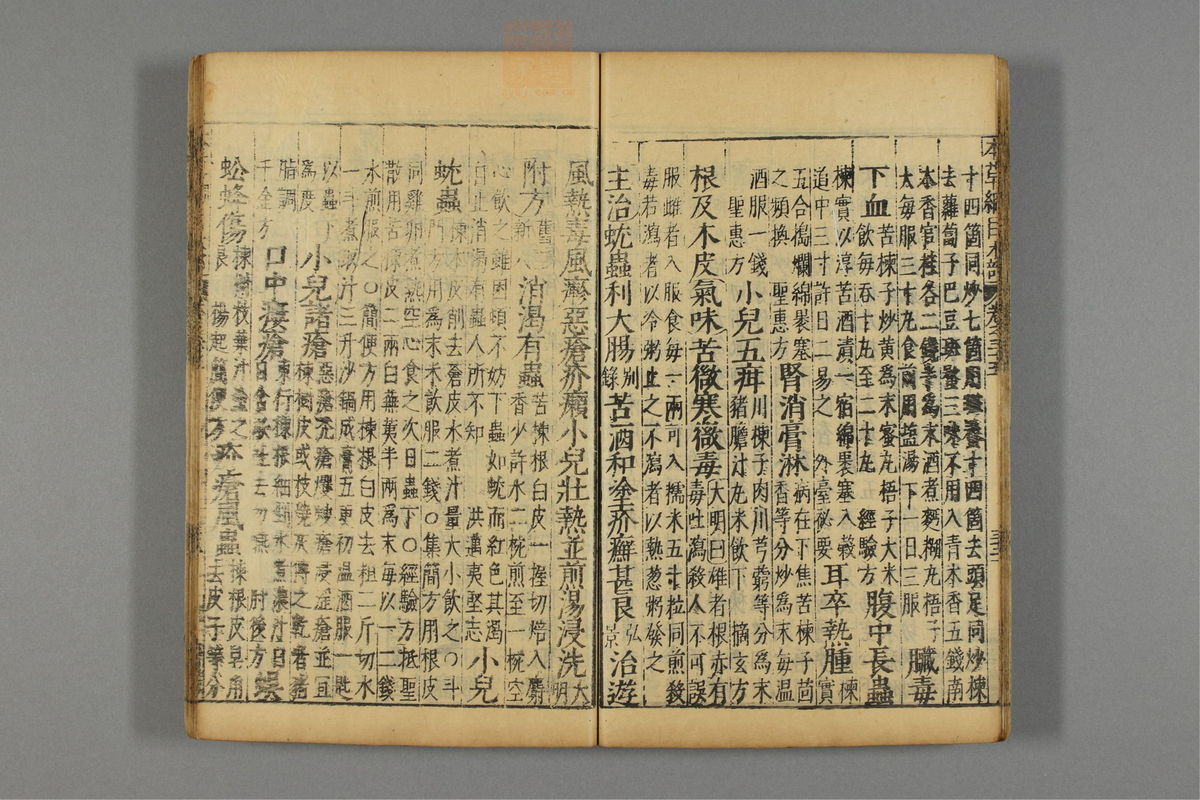 十四箇同炒七箇用
十四箇去頭足同炒楝
去蘿蔔子巴豆斑蝥三味不用入青木香五錢南
木香官桂各二錢半爲末酒煮麪糊丸梧子
大每服三十丸食前用鹽湯下一日三服
臟毒
下血苦楝子炒黄爲末蜜丸梧子大米
飲每吞十丸至二十丸 經驗方
腹中長蟲
楝實以淳苦酒漬一宿綿裹塞入
道中三寸許日二易之 外臺祕要
耳卒熱腫楝實
五合搗爛綿裹塞
之頻換 聖惠方
腎消膏淋病在下焦苦楝子茴
香等分炒爲末每温
酒服一錢
聖惠方
小兒五疳川楝子肉川芎藭等分爲末
豬膽汁丸米飲下 摘玄方
根及木皮氣味苦微寒微毒大明曰雄者根赤有
毒吐瀉殺人不可誤
服雌者入服食每一兩可入糯米五十粒同煎殺
毒若瀉者以冷粥止之不瀉者以熱葱粥發之
主治蚘蟲利大腸别錄苦酒和塗疥癬甚良弘景治遊
風熱毒風疹惡瘡疥癩小兒壯熱並煎湯浸洗大明
附方
消渴有蟲苦楝根白皮一握切焙入麝
香少許水二椀煎至一椀空
心飲之雖困頓不妨下蟲如蚘而紅色其渴
自止消渴有蟲人所不知 洪邁夷堅志
小兒
蚘蟲楝木皮削去蒼皮水煮汁量大小飲之〇斗
門方用爲末米飲服二錢〇集簡方用根皮
同雞卵煮熟空心食之次日蟲下〇經驗方抵聖
散用苦楝皮二兩白蕪荑半兩爲末每以一二錢
水煎服之〇簡便方用楝根白皮去粗二斤切水
一斗煮取汁三升沙鍋成膏五更初温酒服一匙
以蟲下
爲度
小兒諸瘡惡瘡禿瘡蠼螋瘡浸淫瘡並宜
楝樹皮或枝燒灰傅之乾者豬
脂調
千金方
口中瘻瘡東行楝根細剉水煮濃汁日
日含漱吐去勿嚥 肘後方
蜈
蚣蜂傷楝樹枝葉汁塗之
良 楊起簡便方
疥瘡風蟲楝根皮皂角
去皮子等分